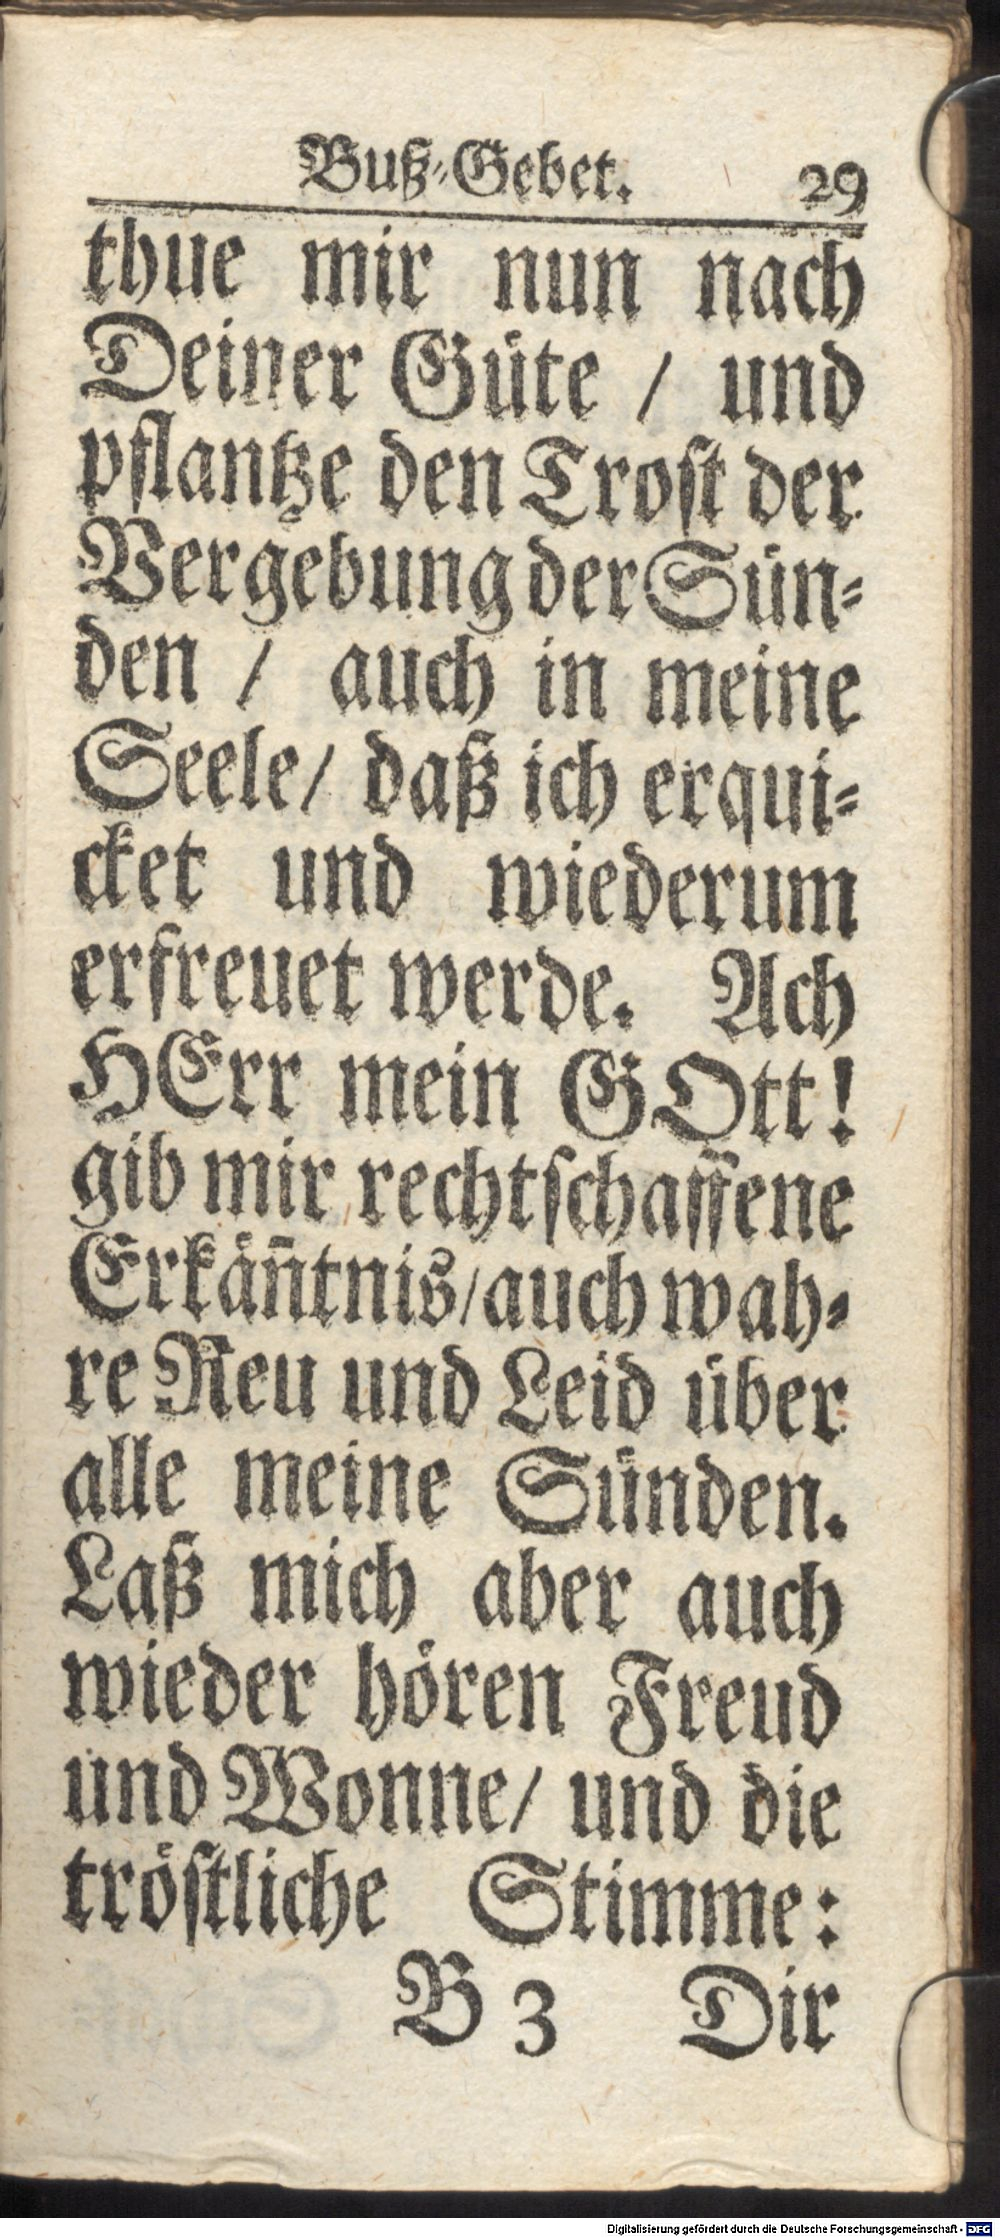 Buß-Gebet. 29
thue mir nun nach
Deiner Güte / und
pflantze den Trost der
Vergebung der Sün-
den / auch in meine
Seele / daß ich erqui-
cket und wiederum
erfreuet werde. Ach
HErr mein GOtt!
gib mir rechtschaffene
Erkäñtnis / auch wah-
re Reu und Leid über
alle meine Sünden.
Laß mich aber auch
wieder hören Freud
und Wonne / und die
tröstliche Stimme:
B 3 Dir
Digitalisierung gefördert durch die Deutsche Forschungsgemeinschaft - DFG